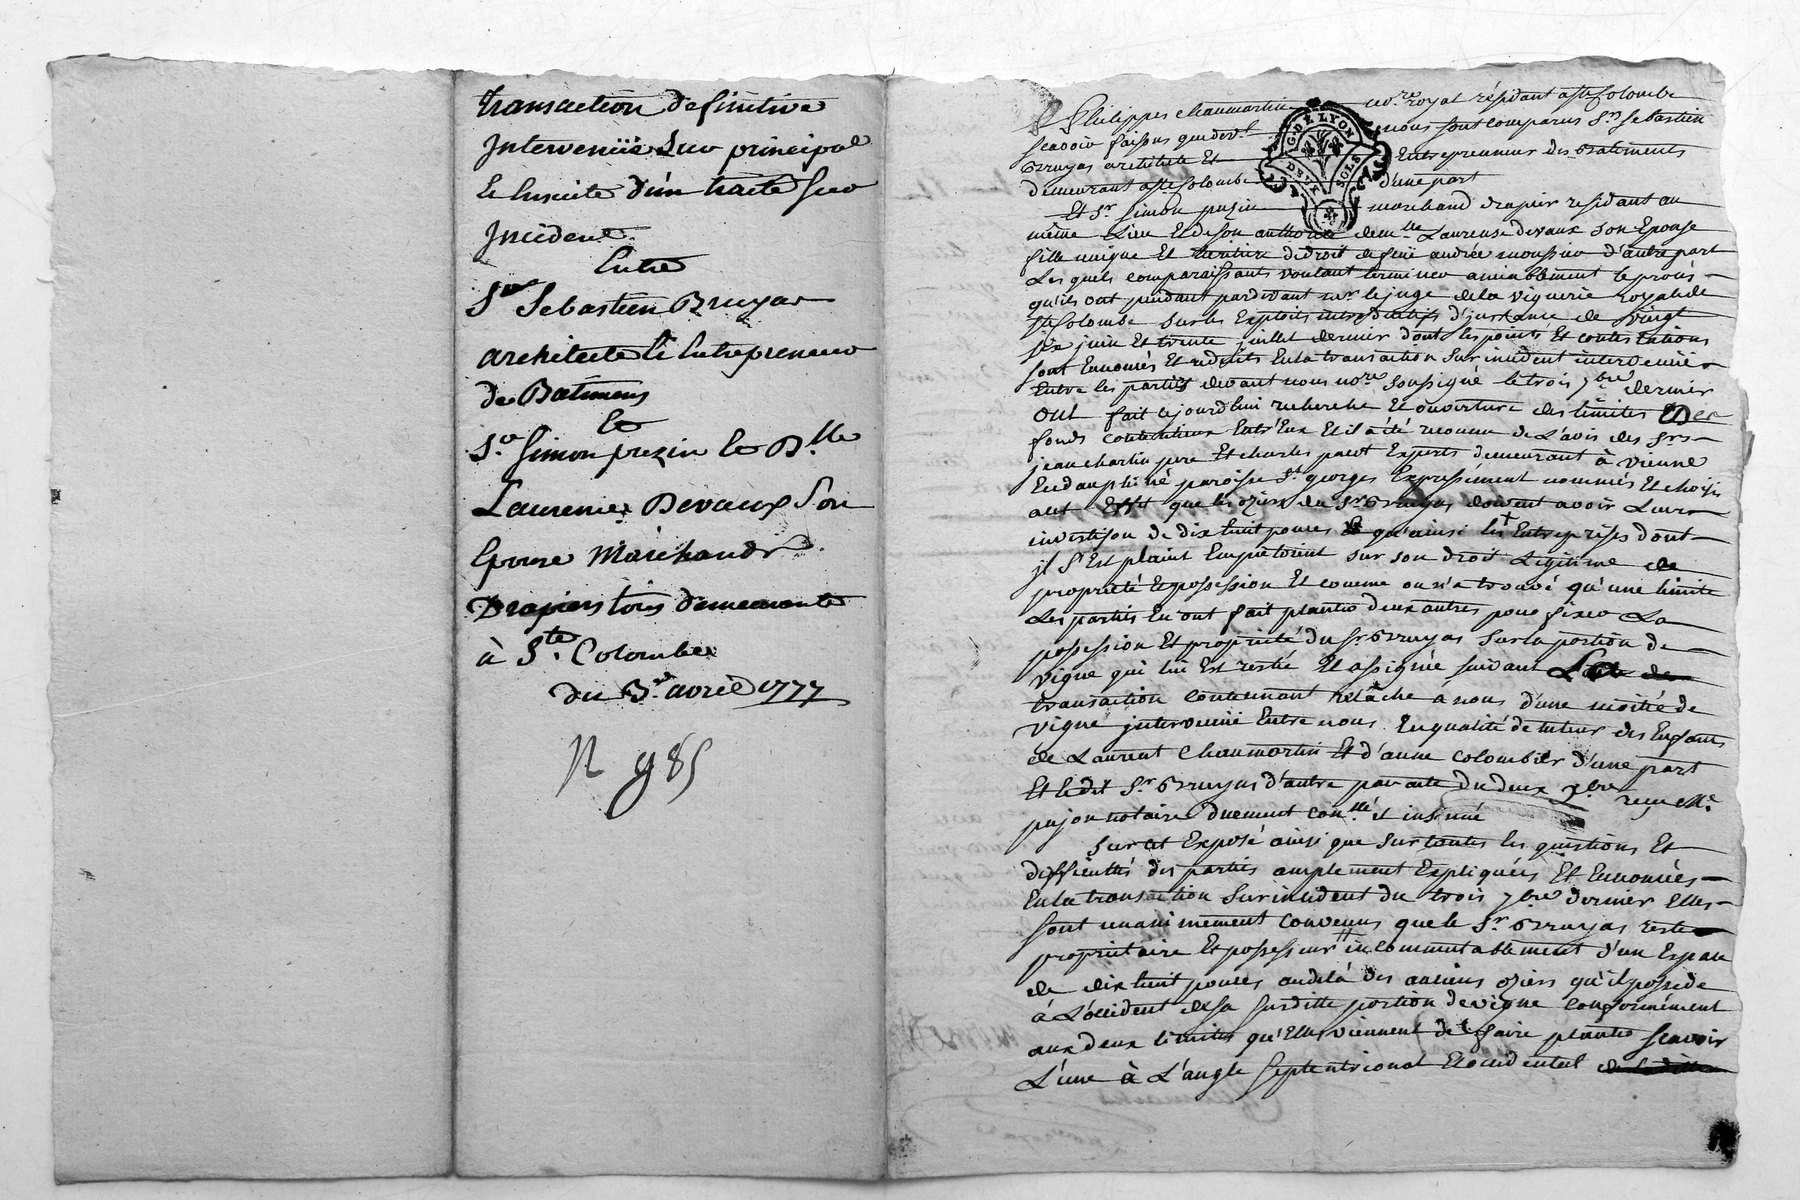 Transaction definitive
Intervenüe Sur principal
Et Ensuite d'un traité Sur
Incident
Entre
Sr Sebastien Bruyas
architecte Et Entrepreneur
de Batimens
Et
Sr Simon pezin Et Dlle
Laurence Devaux Son
Epouse Marchands
Drapiers tous demeurants
à Ste Colombe
du 3 avril 1777
N 985
G. DE LYON
DEUX SOLS
Philippes chaumartin nore royal résidant a ste Colombe
Scavoir faisons que devt nous sont comparus Sr Sebastien
Bruyas architecte Et Entrepreneur des Batiments
demeurant a ste Colombe d'une part
Et Sr Simon pezin marchand drapier residant au
même Lieu Et de son authorité demlle Laurence devaux son Epouse
fille unique Et heritiere de droit de feüe andrée moussier d'autre part
Les quels comparaissants voulant terminer amiablement le procès
qu'ils ont pendant pardevant mr le juge de la viguerie royale de
ste Colombe sur les Exploits introductifs d'instance de vingt
six juin Et trente juillet dernier dont les points Et contestations
sont Ennoncés Et reduits En la transaction sur incident intervenüe
Entre les parties devant nous nore soussigné le trois 7bre dernier
Ont fait cejourd'hui recherche Et ouverture des limites Des
fonds contentieux Entr'Eux Et il a été reconnu de L'avis des srs
jean chartin pere Et charles pacot Experts demeurant à vienne
En dauphiné paroisse St georges Expressément nommés Et choisis
a cet Effet que les oziers du Sr Bruyas doivent avoir Leur
investison de dix huit pouces qu'ainsi les Entreprises dont
il s'Est plaint Empietoient sur son droit Legitime de
propriété Et possession Et comme on n'a trouvé qu'une limite
Les parties En ont fait planter deux autres pour fixer La
possession Et propriété du Sr Bruyas sur la portion de
vigne qui lui Est restée Et assignée suivant La
transaction contenant relâche a nous d'une moitié de
vigne intervenüe Entre nous En qualité de tuteur des Enfants
de Laurent Chaumartin Et d'anne colombier d'une part
Et ledit Sr Bruyas d'autre par acte du deux xbre reçu Me
pujon notaire duement conllé et insinué
Sur cet Exposé ainsi que sur toutes les questions Et
difficultés des parties amplement Expliquées Et Ennoncées
En la transaction Sur incident du trois 7bre dernier Elles
sont unanimement convenus que le Sr Bruyas reste
proprietaire Et possesseur incommutablement d'un Espace
de dix huit pouces audelà des anciens oziers qu'il possede
à L'occident de sa susditte portion de vigne conformément
aux deux limites qu'Elles viennent de faire planter Scavoir
L'une à L'angle Septentrional Et occidental